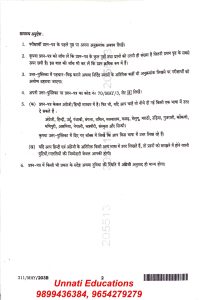 सामान्य अनुदेश :
1. परीक्षार्थी प्रश्न-पत्र के पहले पृष्ठ पर अपना अनुक्रमांक अवश्य लिखें।
2. कृपया प्रश्न-पत्र को जाँच लें कि प्रश्न-पत्र के कुल पृष्ठों तथा प्रश्नों की उतनी ही संख्या है जितनी प्रथम पृष्ठ के सबसे
ऊपर छपी है। इस बात की जाँच भी कर लें कि प्रश्न क्रमिक रूप में हैं।
3. उत्तर-पुस्तिका में पहचान-चिह्न बनाने अथवा निर्दिष्ट स्थानों के अतिरिक्त कहीं भी अनुक्रमांक लिखने पर परीक्षार्थी को
अयोग्य ठहराया जाएगा।
4. अपनी उत्तर-पुस्तिका पर प्रश्न-पत्र का कोड नं॰ 70/MAY/3, सेट लिखें।
5. (क) प्रश्न-पत्र केवल अंग्रेजी/हिन्दी माध्यम में है। फिर भी, यदि आप चाहें तो नीचे दी गई किसी एक भाषा में उत्तर
दे सकते हैं :
अंग्रेजी, हिन्दी, उर्दू, पंजाबी, बंगला, तमिल, मलयालम, कन्नड़, तेलुगू, मराठी, उड़िया, गुजराती, कोंकणी,
मणिपुरी, असमिया, नेपाली, कश्मीरी, संस्कृत और सिन्धी।
कृपया उत्तर-पुस्तिका में दिए गए बॉक्स में लिखें कि आप किस भाषा में उत्तर लिख रहे हैं।
(ख) यदि आप हिन्दी एवं अंग्रेजी के अतिरिक्त किसी अन्य भाषा में उत्तर लिखते हैं, तो प्रश्नों को समझने में होने वाली
त्रुटियों/गलतियों की जिम्मेदारी केवल आपकी होगी।
6. प्रश्न-पत्र में किसी भी प्रकार के संदेह अथवा दुविधा की स्थिति में अंग्रेजी अनुवाद ही मान्य होगा।
311/MAY/203B
2
Unnati Educations
9899436384, 9654279279